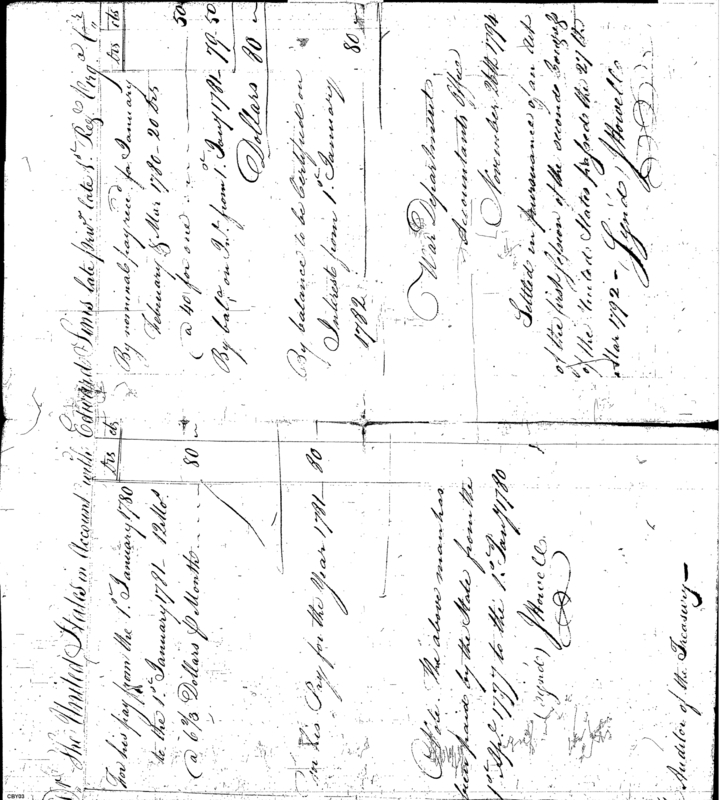 Dr. The United States in Account with Edward Sims late Priv. late 8th Reg. Virg.a Cr.
Drs cts
For his pay from the 1st January 1780
to the 1st January 1781 - 12 Mos
@ 6 2/3 Dollars P Month - - - 80 ~
on his Pay for the Year 1781 - 80
Note. The above man has
been paid by the State from the
1st Apl. 1777 to the 1st Jany 1780
Signd) J Howell
Auditor of the Treasury
Drs cts
By nominal pay rec'd for January
February & Mar 1780 - 20 Drs
@ 40 for one - - - 50
By balc. on Int. from 1st Jany 1781 - 79.50
Dollars 80 ~
By balance to be Certified on
Interest from 1st January
1782 - 80
War Department
Accountants Office
November 26th 1794
Settled in pursuance of an Act
of the first session of the second Congress
of the United States passed the 27th
Mar 1792 - Signd) J Howell
CBY03